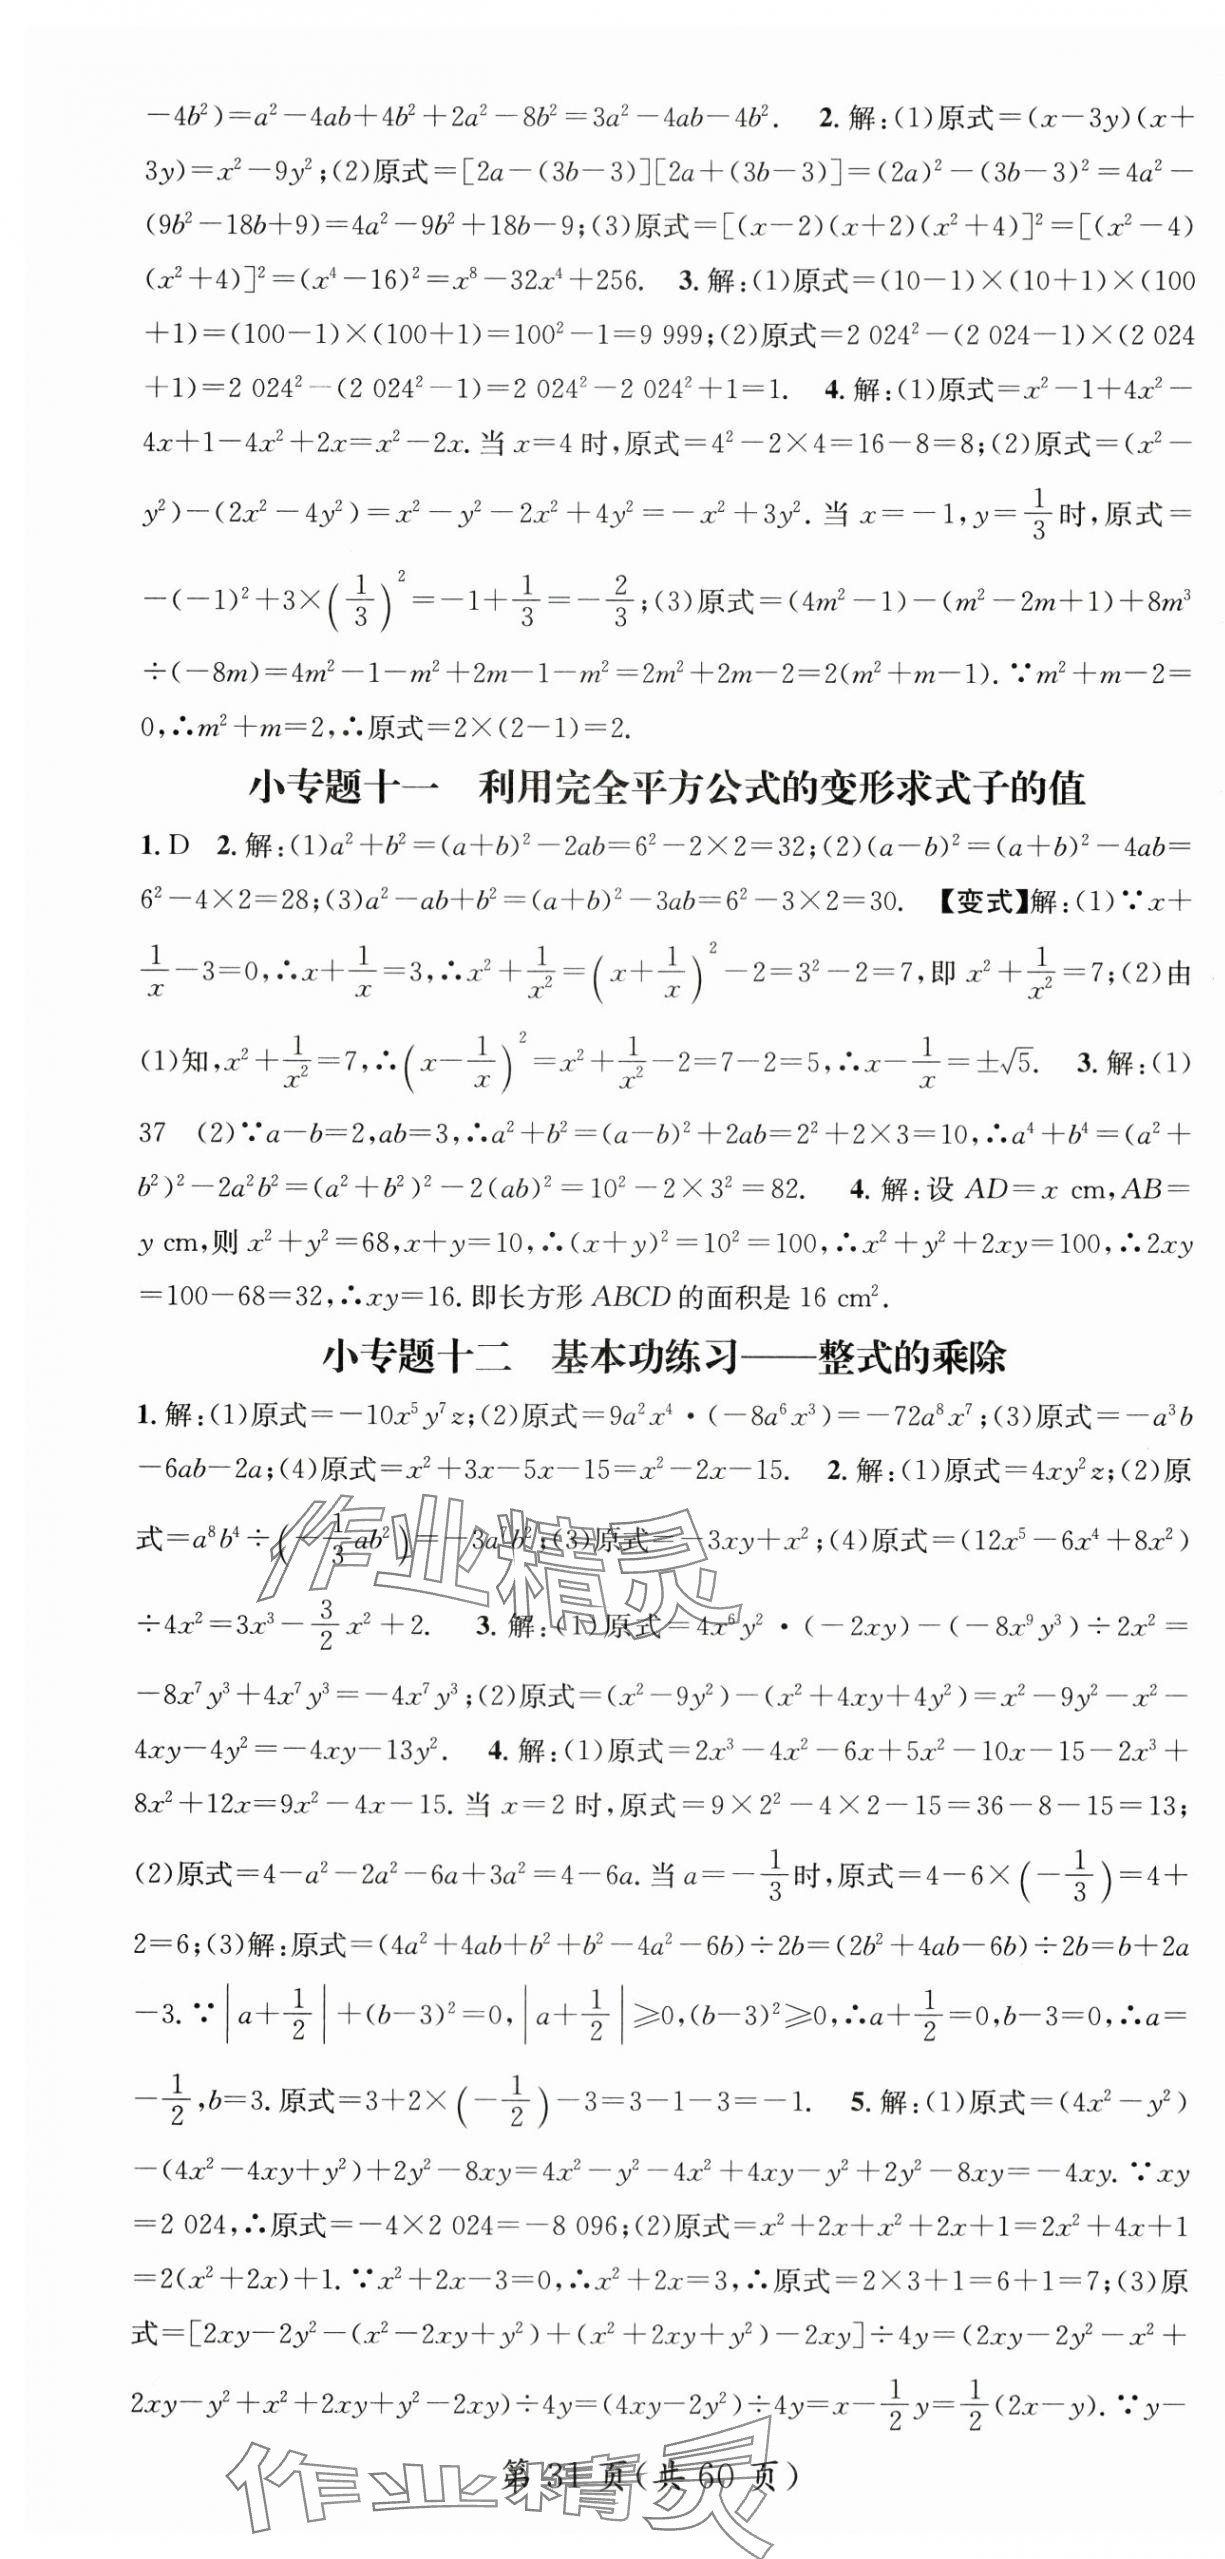 −4b²)=a²−4ab+4b²+2a²−8b²=3a²−4ab−4b². 2. 解:(1)原式=(x−3y)(x+
3y)=x²−9y²;(2)原式=[2a−(3b−3)][2a+(3b−3)]=(2a)²−(3b−3)²=4a²−
(9b²−18b+9)=4a²−9b²+18b−9;(3)原式=[(x−2)(x+2)(x²+4)]²=[(x²−4)
(x²+4)]²=(x⁴−16)²=x⁸−32x⁴+256. 3. 解:(1)原式=(10−1)×(10+1)×(100
+1)=(100−1)×(100+1)=100²−1=9 999;(2)原式=2 024²−(2 024−1)×(2 024
+1)=2 024²−(2 024²−1)=2 024²−2 024²+1=1. 4. 解:(1)原式=x²−1+4x²−
4x+1−4x²+2x=x²−2x. 当 x=4 时,原式=4²−2×4=16−8=8;(2)原式=(x²−
y²)−(2x²−4y²)=x²−y²−2x²+4y²=−x²+3y². 当 x=−1,y=1/3 时,原式=
−(−1)²+3×(1/3)²=−1+1/3=−2/3;(3)原式=(4m²−1)−(m²−2m+1)+8m³
÷(−8m)=4m²−1−m²+2m−1−m²=2m²+2m−2=2(m²+m−1). ∵m²+m−2=
0,∴m²+m=2,∴原式=2×(2−1)=2.
小专题十一 利用完全平方公式的变形求式子的值
1. D 2. 解:(1)a²+b²=(a+b)²−2ab=6²−2×2=32;(2)(a−b)²=(a+b)²−4ab=
6²−4×2=28;(3)a²−ab+b²=(a+b)²−3ab=6²−3×2=30. 【变式】解:(1)∵x+
1/x−3=0,∴x+1/x=3,∴x²+1/x²=(x+1/x)²−2=3²−2=7,即 x²+1/x²=7;(2)由
(1)知,x²+1/x²=7,∴(x−1/x)²=x²+1/x²−2=7−2=5,∴x−1/x=±√5. 3. 解:(1)
37 (2)∵a−b=2,ab=3,∴a²+b²=(a−b)²+2ab=2²+2×3=10,∴a⁴+b⁴=(a²+
b²)²−2a²b²=(a²+b²)²−2(ab)²=10²−2×3²=82. 4. 解:设 AD=x cm,AB=
y cm,则 x²+y²=68,x+y=10,∴(x+y)²=10²=100,∴x²+y²+2xy=100,∴2xy
=100−68=32,∴xy=16. 即长方形 ABCD 的面积是 16 cm².
小专题十二 基本功练习——整式的乘除
1. 解:(1)原式=−10x⁵y⁷z;(2)原式=9a²x⁴·(−8a⁶x³)=−72a⁸x⁷;(3)原式=−a³b
−6ab−2a;(4)原式=x²+3x−5x−15=x²−2x−15. 2. 解:(1)原式=4xy²z;(2)原
式=a⁸b⁴÷(−1/3ab²)=−3a⁷b²;(3)原式=−3xy+x²;(4)原式=(12x⁵−6x⁴+8x²)
÷4x²=3x³−3/2x²+2. 3. 解:(1)原式=4x⁶y²·(−2xy)−(−8x⁹y³)÷2x²=
−8x⁷y³+4x⁷y³=−4x⁷y³;(2)原式=(x²−9y²)−(x²+4xy+4y²)=x²−9y²−x²−
4xy−4y²=−4xy−13y². 4. 解:(1)原式=2x³−4x²−6x+5x²−10x−15−2x³+
8x²+12x=9x²−4x−15. 当 x=2 时,原式=9×2²−4×2−15=36−8−15=13;
(2)原式=4−a²−2a²−6a+3a²=4−6a. 当 a=−1/3时,原式=4−6×(−1/3)=4+
2=6;(3)解:原式=(4a²+4ab+b²+b²−4a²−6b)÷2b=(2b²+4ab−6b)÷2b=b+2a
−3. ∵|a+1/2|+(b−3)²=0,|a+1/2|≥0,(b−3)²≥0,∴a+1/2=0,b−3=0,∴a=
−1/2,b=3. 原式=3+2×(−1/2)−3=3−1−3=−1. 5. 解:(1)原式=(4x²−y²)
−(4x²−4xy+y²)+2y²−8xy=4x²−y²−4x²+4xy−y²+2y²−8xy=−4xy. ∵xy
=2 024,∴原式=−4×2 024=−8 096;(2)原式=x²+2x+x²+2x+1=2x²+4x+1
=2(x²+2x)+1. ∵x²+2x−3=0,∴x²+2x=3,∴原式=2×3+1=6+1=7;(3)原
式=[2xy−2y²−(x²−2xy+y²)+(x²+2xy+y²)−2xy]÷4y=(2xy−2y²−x²+
2xy−y²+x²+2xy+y²−2xy)÷4y=(4xy−2y²)÷4y=x−1/2y=1/2(2x−y). ∵y−
第 31 页(共 60 页)
作业精灵
作业精灵